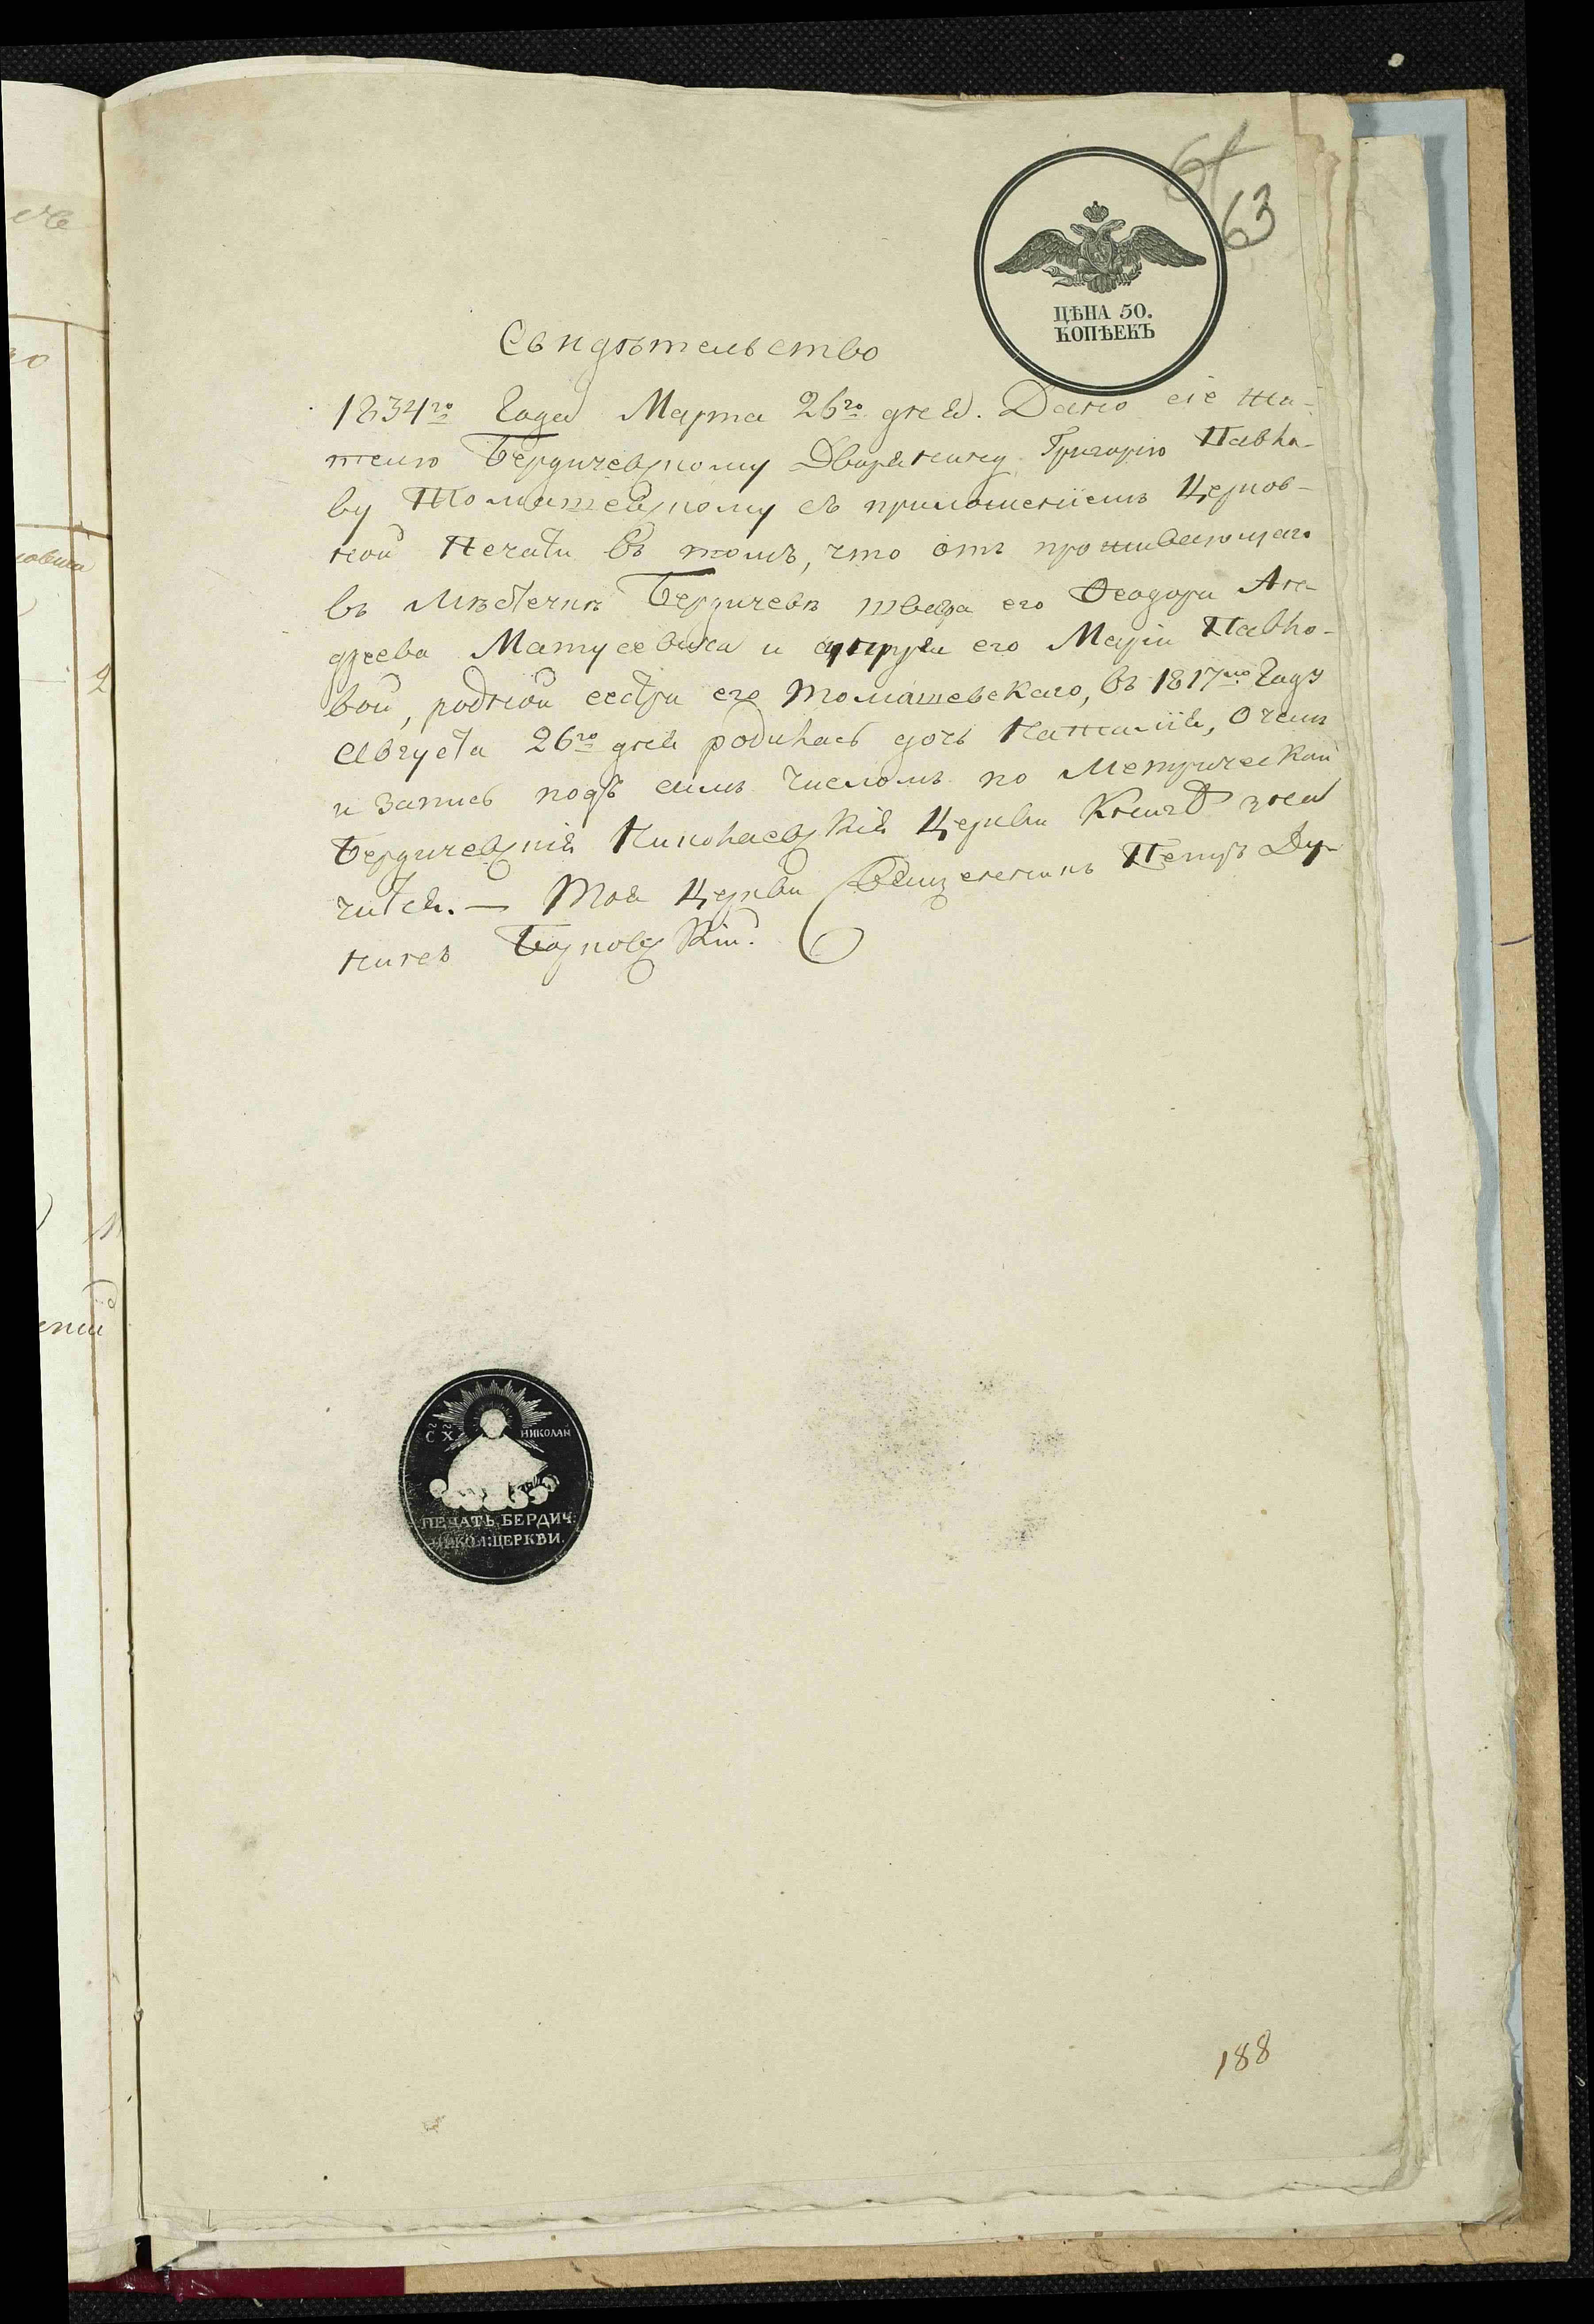 61
63
ЦѢНА 50.
КОПѢЕКЪ
Свидѣтельство
1834го Года Марта 26го дня. Дано сіе жи-
телю Бердичевскому Дворянину Григорію Павло-
ву Томашевскому съ приложеніемъ Церков-
ной Печати въ томъ, что отъ проживающаго
въ Мѣстечкѣ Бердичевѣ его Феодора Ан-
дреева Матусевича и супруги его Маріи Павло-
вой, родной сестры его Томашевскаго, въ 1817мъ Году
Августа 26го дня родилась дочь Наталія, о чемъ
и запись подъ симъ числомъ по Метрической
Бердичевскія Николаевскія Церкви Книгѣ зна
чится. — Тоя Церкви Священникъ Петръ
Барновскій.
С Х НИКОЛАЙ
ПЕЧАТЬ БЕРДИЧ:
НИКОЛ: ЦЕРКВИ.
188